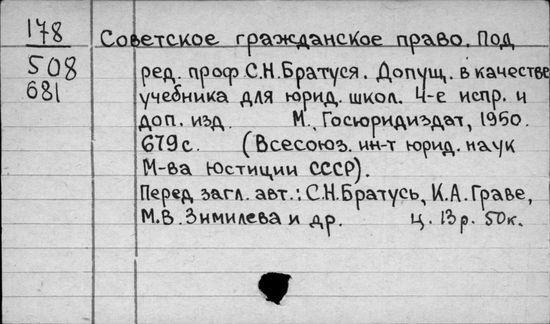 178
508
681
Советское гражданское право. Под
ред. проф С.Н.Братуся. Допущ. в качестве
учебника для юрид. школ. 4-е испр. и
доп. изд. М., Госюридиздат, 1950.
679с. (Всесоюз. ин-т юрид. наук
М-ва юстиции СССР).
Перед загл. авт.: С.Н.Братусь, К.А.Граве,
М.В.Зимилева и др. ц. 13р. 50к.